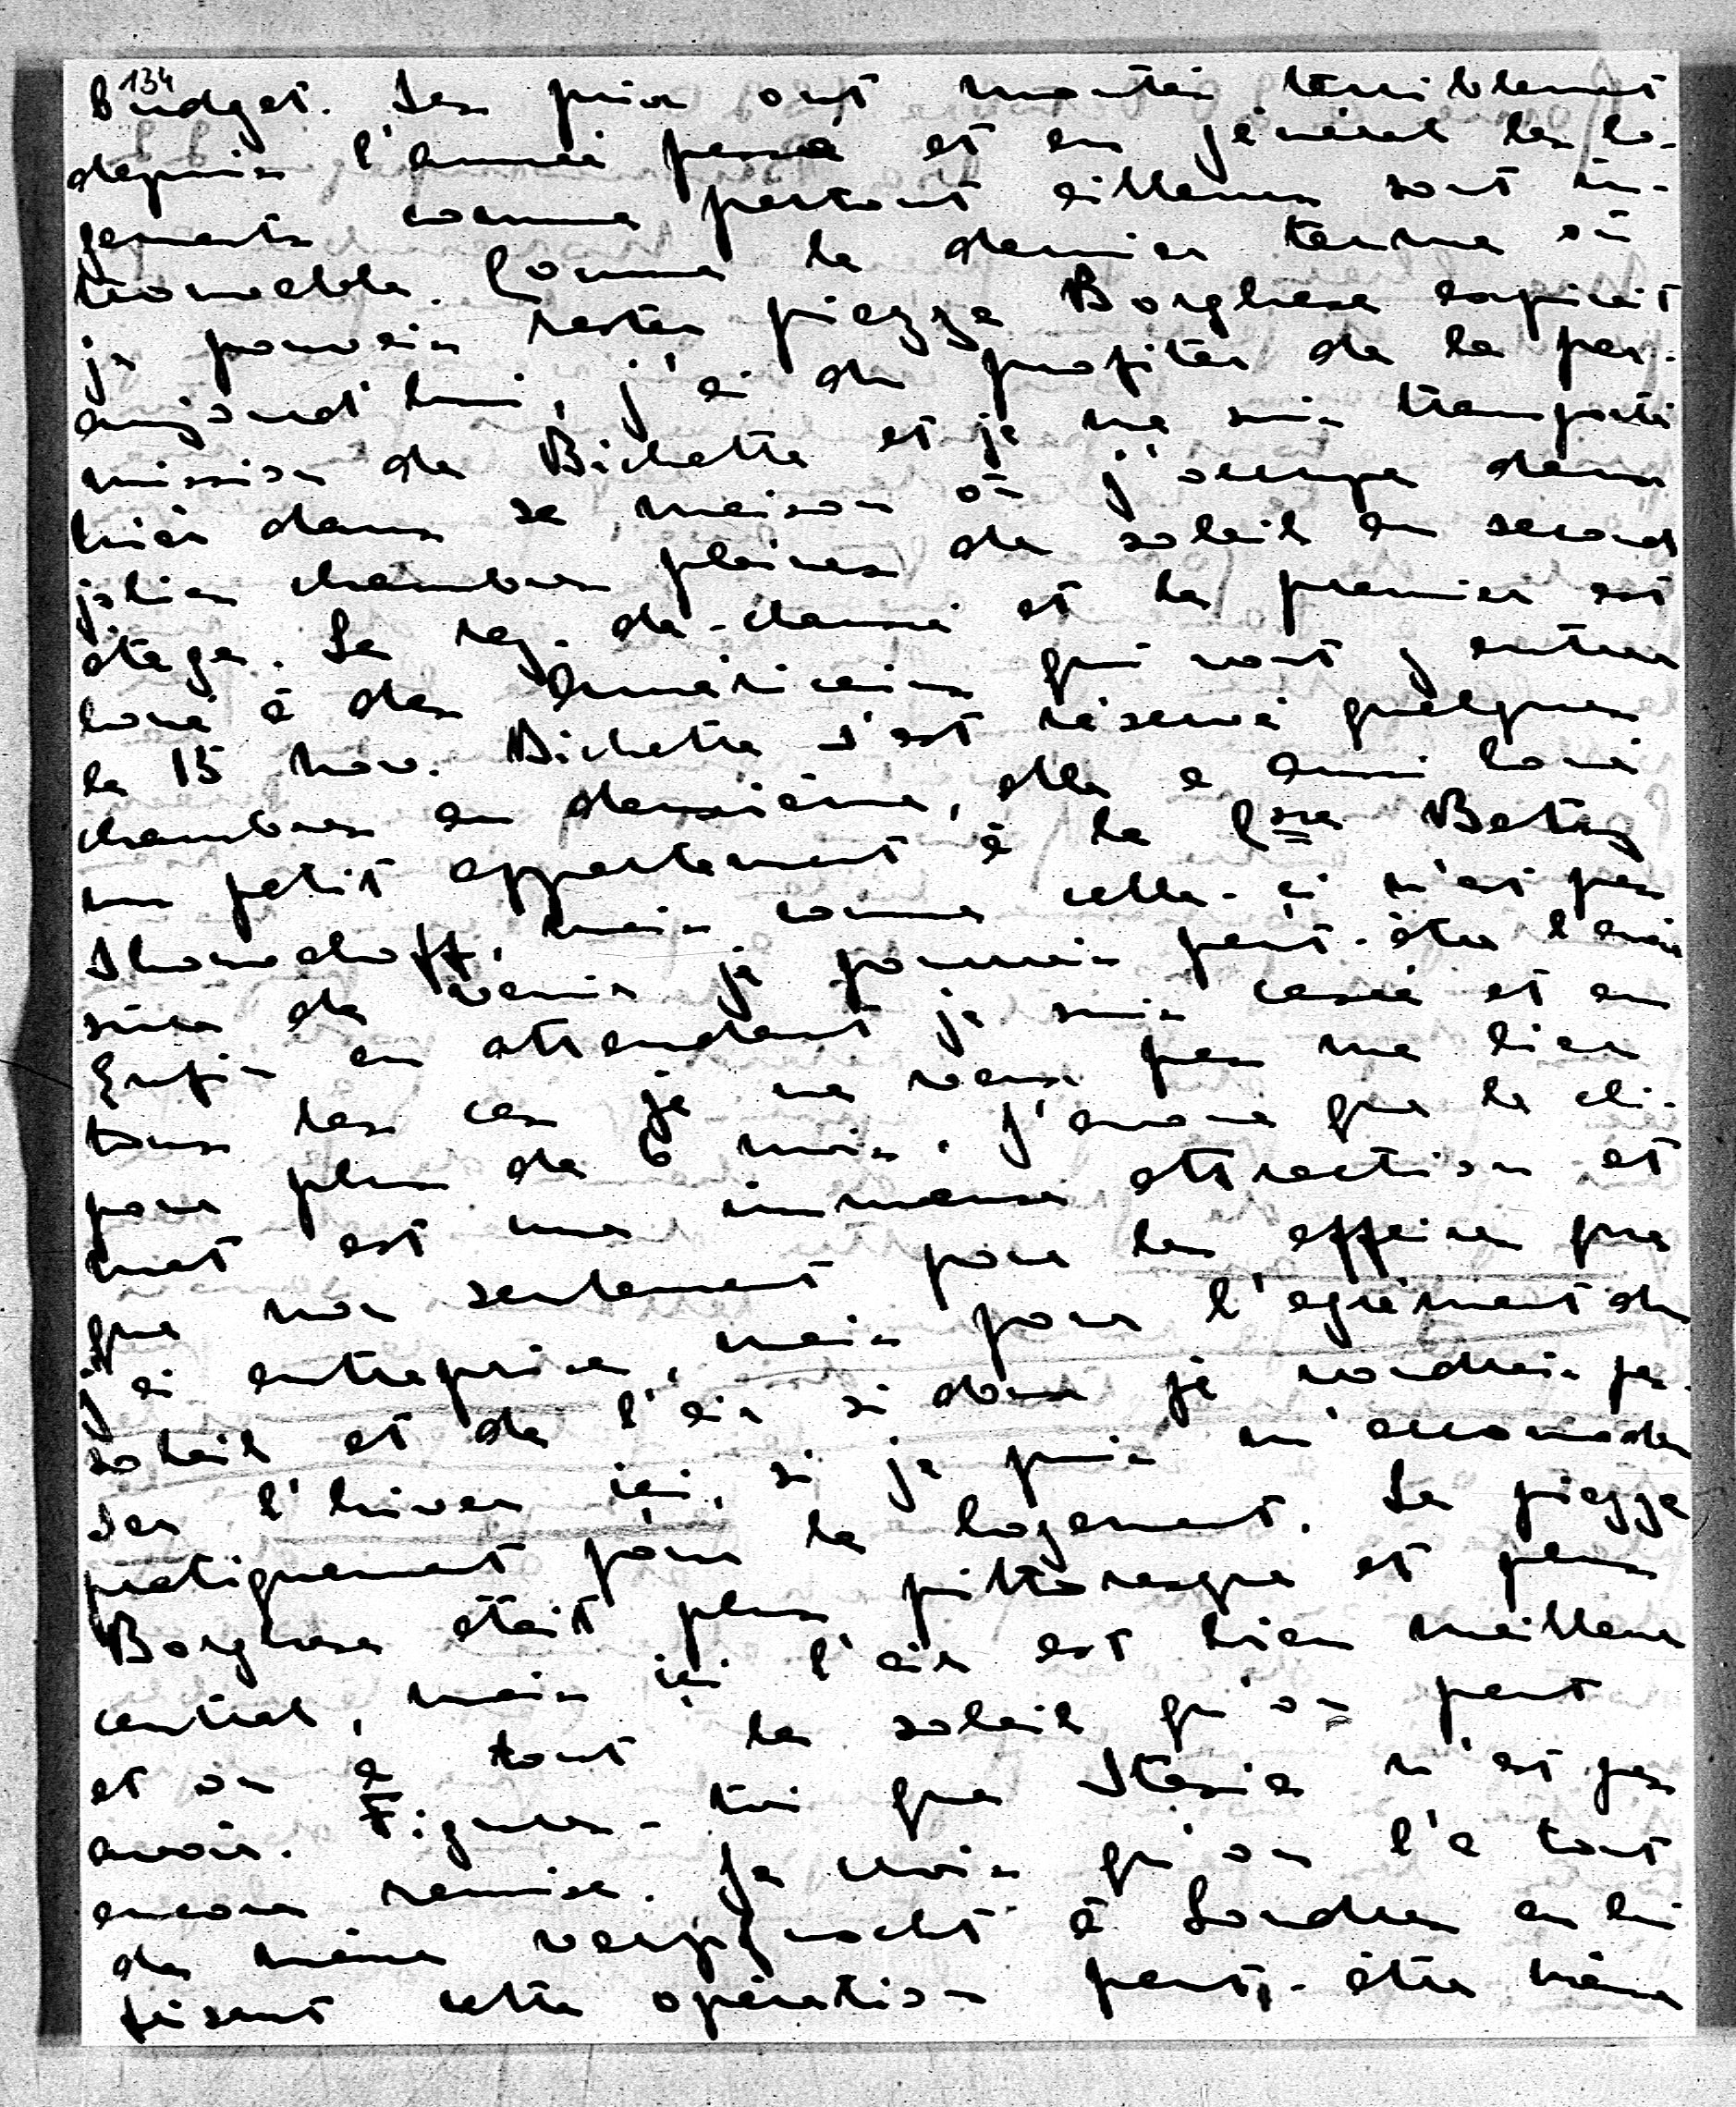 134
budget. Les prix ont monté terriblement
depuis l'année passée et en général les lo-
gements comme partout ailleurs sont in-
trouvables. Comme le dernier terme où
je pouvais rester piazza Borghese expirait
aujourd'hui, j'ai du profiter de la per-
mission de Bichette et je me suis transporté
hier dans sa maison où j'occupe deux
jolies chambres pleines de soleil au second
étage. Le rez-de-chaussé et le premier est
loué à des Américains qui vont y entrer
le 15 Nov. Bichette s'est réservé quelques
chambres au deuxième, elle a aussi loué
un petit appartement à la Css Betsy
mais comme celle-ci n'est pas
sûre de venir je pourrais peut-être l'avoir
Enfin en attendant je suis casé et en
tous les cas je ne veux pas me lier
pour plus de 6 mois. J'avoue que le cli-
mat est une immense attraction et
que non seulement pour les affaires que
j'ai entreprises, mais pour l'agrément du
soleil et de l'air si doux je voudrais pas-
ser l'hiver ici, si je puis m'accomoder
pratiquement pour le logement. La piazza
Borghese était plus pittoresque et plus
central, mais ici l'air est bien meilleur
et on a tout le soleil qu'on peut
avoir. Figures-toi que Stasia n'est pas
encore remise. Je crois qu'on l'a tout
de même verpfuscht à Londres en lui
faisant cette opération peut-être même